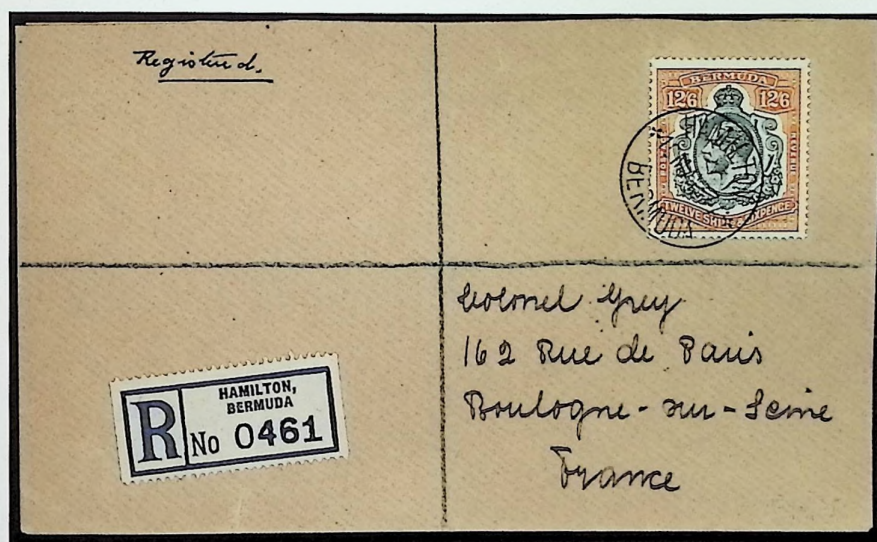 Registered.
BERMUDA
12/6 12/6
TWELVE SHIL & SIXPENCE
HAMILTON
BERMUDA
HAMILTON,
BERMUDA
R No 0461
Colonel Grey
162 Rue de Paris
Boulogne-sur-Seine
France